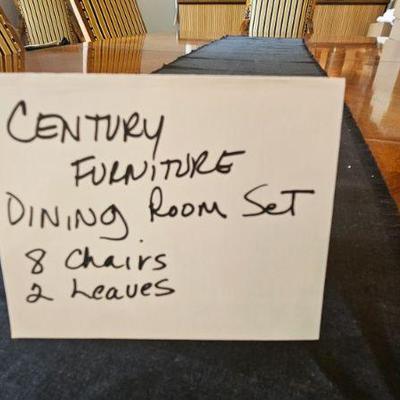 CENTURY
FURNITURE
DINING ROOM SET
8 Chairs
2 Leaves